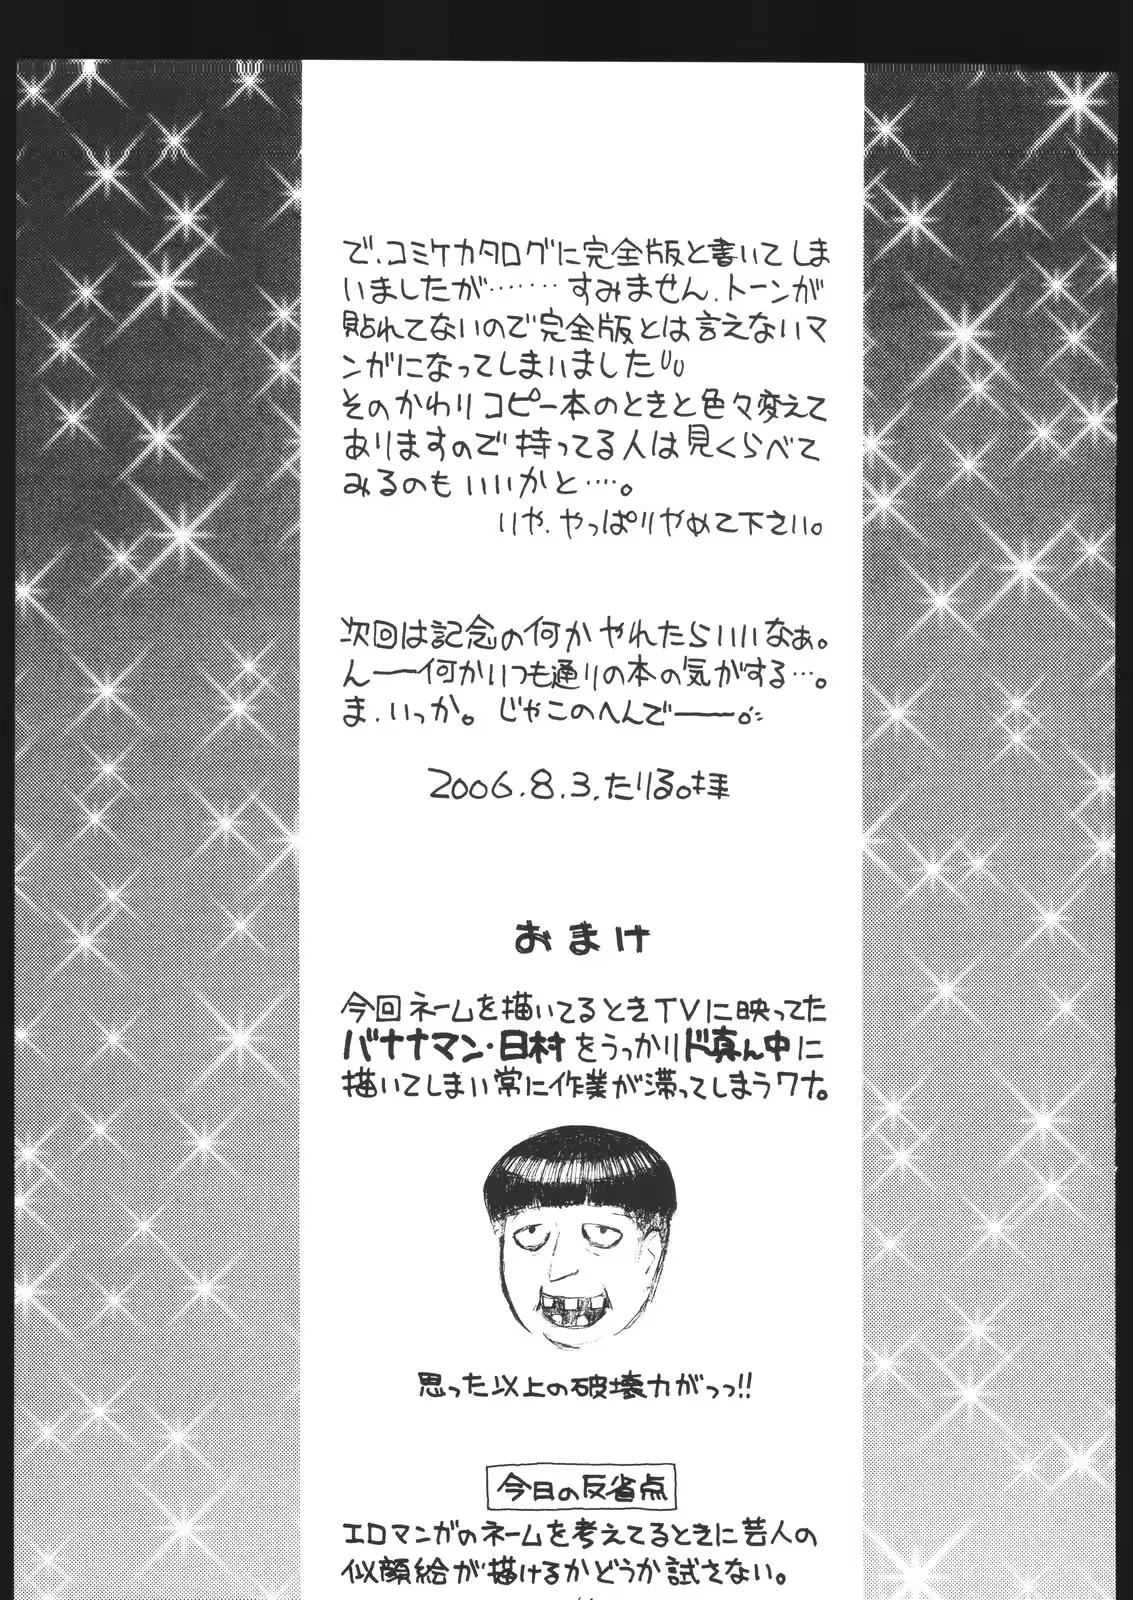 で、コミケカタログに完全版と書いてしま
いましたが……. すみません、トーンが
貼れてないので完全版とは言えないマ
ンガになってしまいました
そのかわりコピー本のときと色々変えて
ありますので持ってる人は見くらべて
みるのもいいかと….。
いや、やっぱりやめて下さい。
次回は記念の何かやれたらいいなぁ。
んー何かいつも通りの本の気がする…。
ま、いっか。じゃこのへんでー。
2006.8.3.たりる。様
おまけ
今回ネームを描いてるときTVに映ってた
バナナマン・日村をうっかりド真ん中に
描いてしまい常に作業が滞ってしまうワナ。
思った以上の破壊力がっっ!!
今日の反省点
エロマンガのネームを考えてるときに芸人の
似顔絵が描けるかどうか試さない。